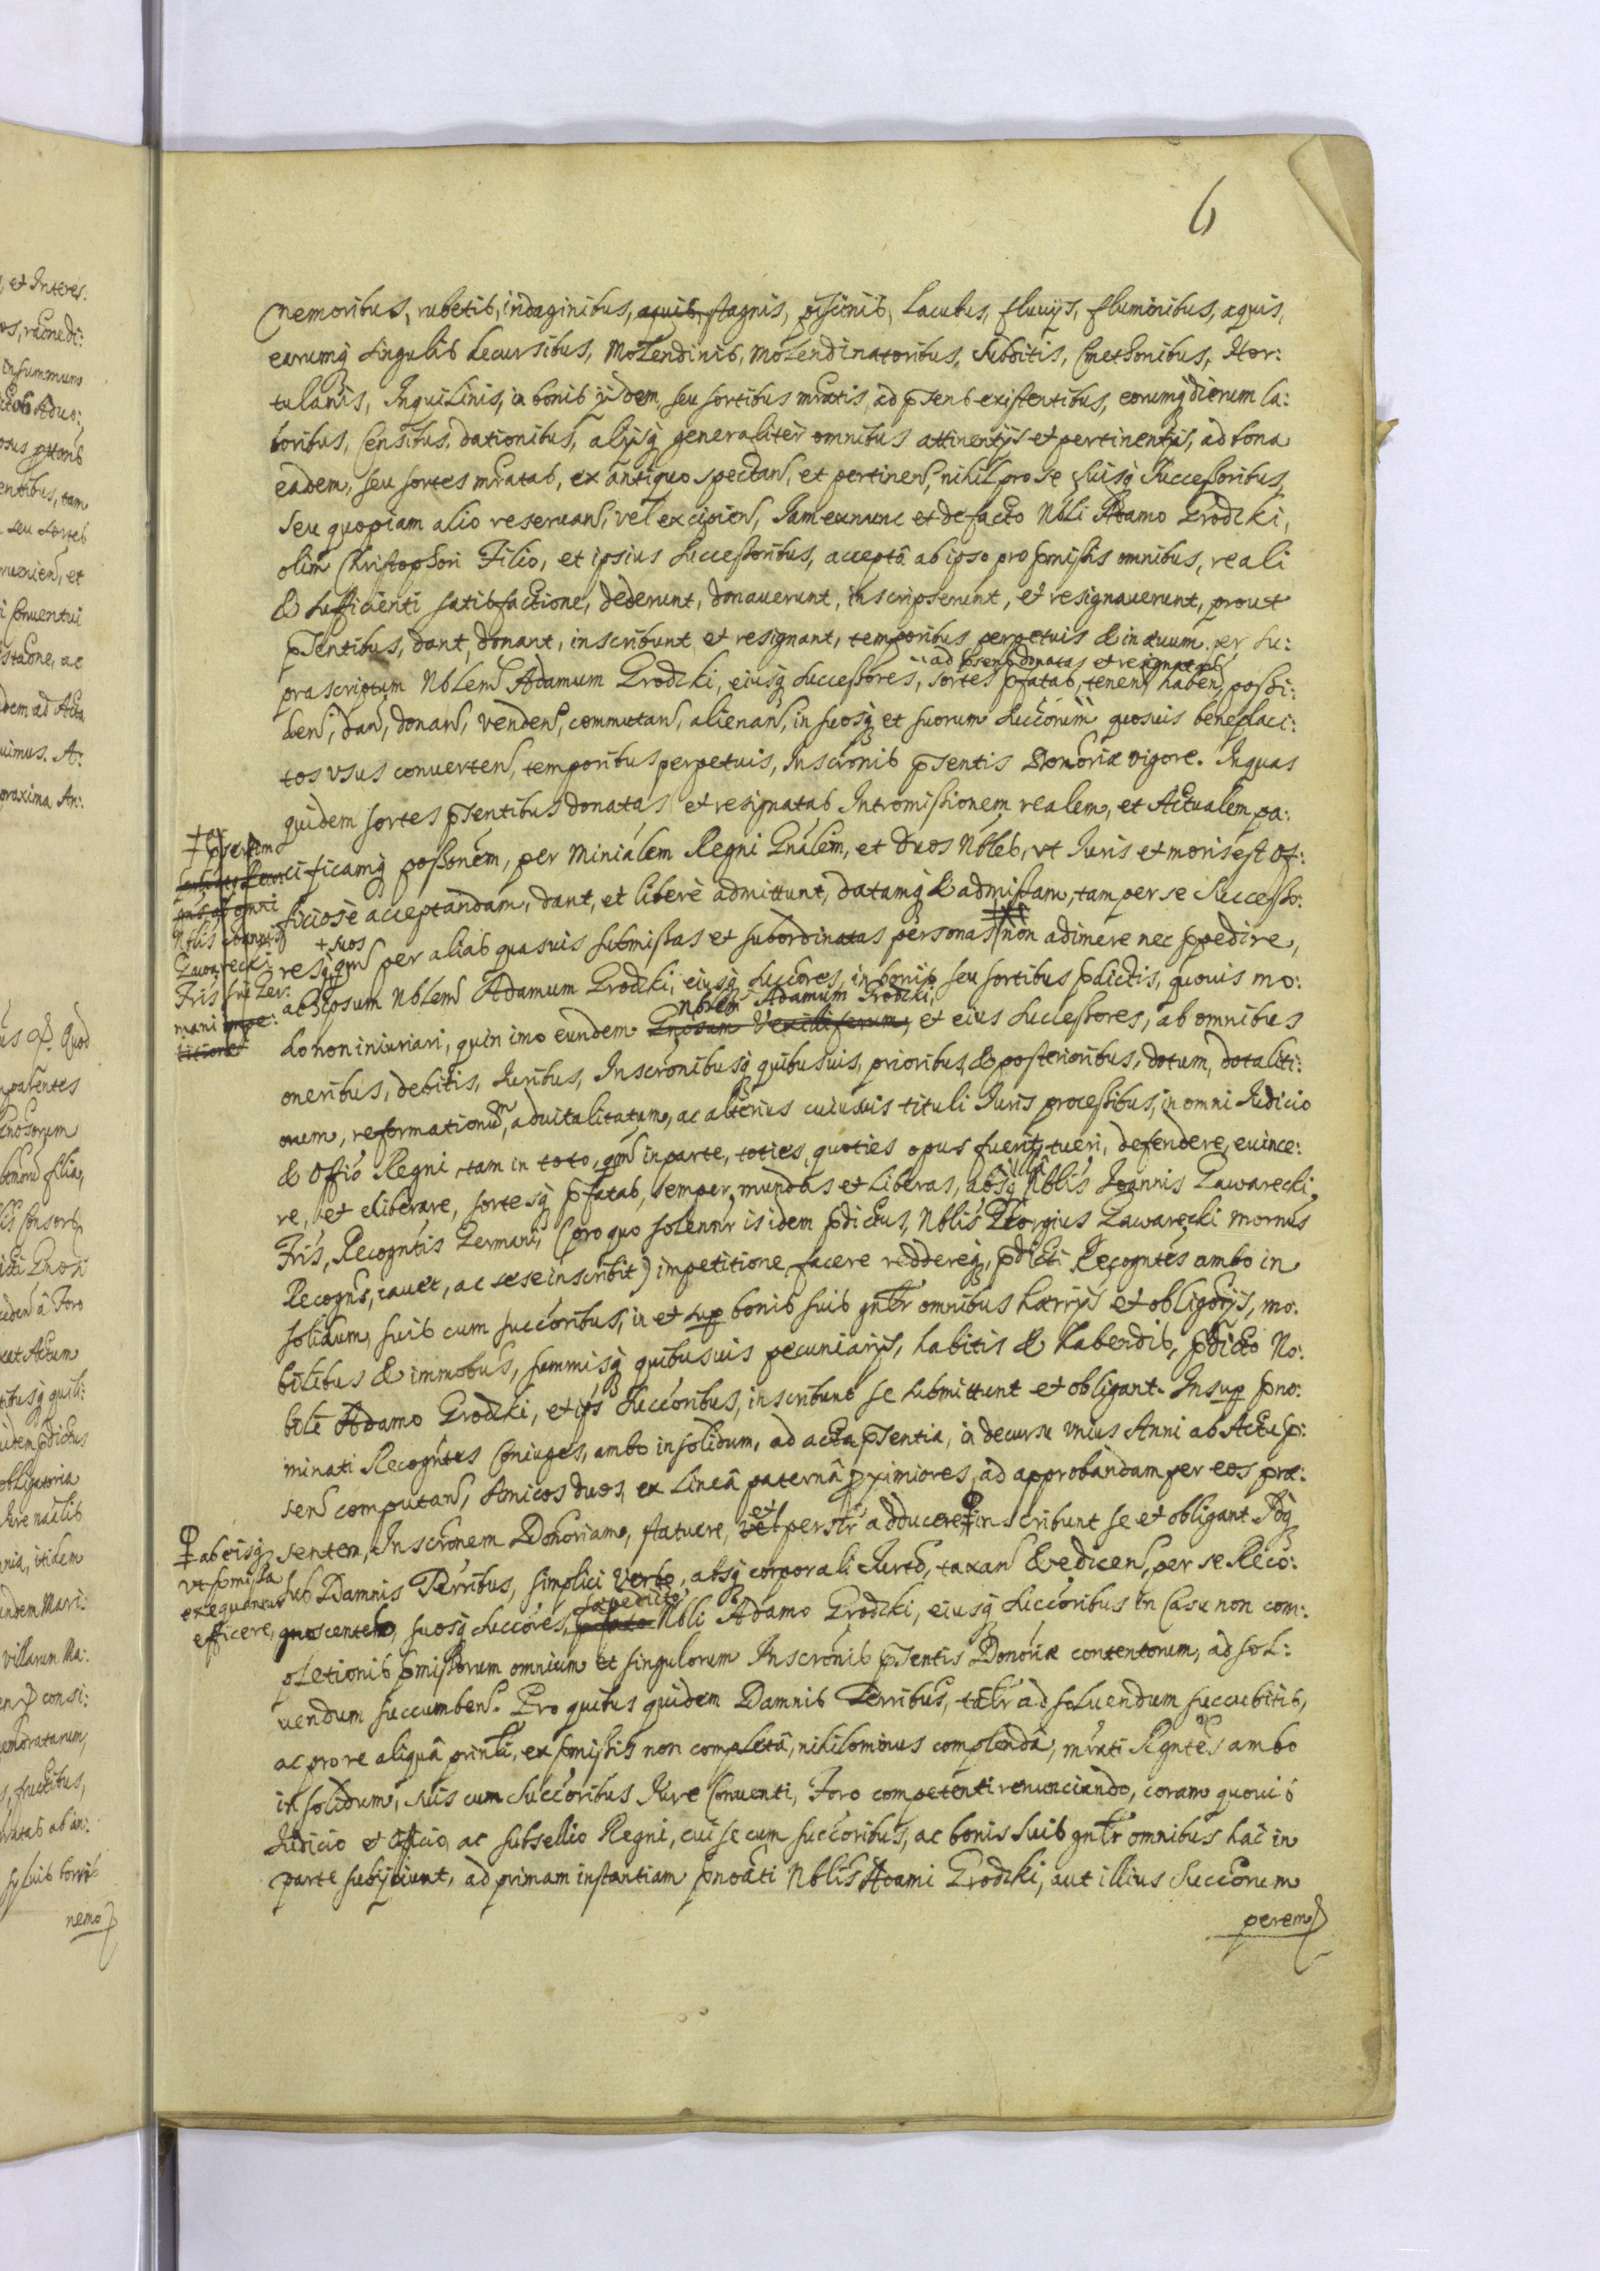 6
nemoribus, rubetis, indaginibus, aquis, stagnis, piscinis, Lacubus, fluuijs, fluminibus, aquis,
earumq singulis decursibus, Molendinis, Molendinatoribus, Subditis, Cmethonibus, Hor:
tulanis, Inquilinis, in bonis ijsdem, seu sortibus mratis, ad psens existentibus, eorumq dierum la:
boribus, Censibus, dationibus, alijsq generaliter omnibus attinentijs et pertinentijs, ad bona
eadem, seu sortes mratas, ex antiquo spectans, et pertinens, nihil pro se suisq Successoribus,
seu quopiam alio reseruans, vel excipiens, Iam exnunc et de facto Nbli Adamo Grodzki,
olim Christophori Filio, et ipsius Successoribus, acceptâ ab ipso pro pmissis omnibus, reali
& sufficienti satisfactione, dederunt, donauerunt, inscripserunt, et resignauerunt, prout
psentibus, dant, donant, inscribunt et resignant, temporibus perpetuis & in æuum. per su:
ad psens donatas et resignatas
prascriptum Nblem Adamum Grodzki, eiusq Successores, sortes pfatas, tenens habens, possi:
dens, dans, donans, vendens, commutans, alienans, in suosq et suorum Succorum quosuis beneplaci:
tos vsus convertens, temporibus perpetuis, Inscronis psentis Donoriæ vigore. In quas
quidem sortes psentibus donatas et resignatas Intromissionem realem, et Actualem pa:
cificamq possonem, per Minialem Regni Gnalem, et duos Nbles, vt Iuris et moris est of:
ficiosè acceptandam, dant, et liberè admittunt, datamq & admissam, tam per se Successo:
+ suos
resq qm per alias quasuis submissas et subordinatas personas, non adimere nec ppedire,
ac ipsum Nblem Adamum Grodzki, eiusq Succores, in bonis seu sortibus pdictis, quouis mo:
Nblem Adamum Grodzki,
do non iniuriari, quin imo eundem Gnosum Vexilliferum, et eius Successores, ab omnibus
oneribus, debitis, Iuribus, Inscronibusq quibusuis, prioribus & posterioribus, dotum, dotaliti:
orum, reformationu, aduitalitatum, ac alterius cuiusuis tituli Iuris processibus, in omni Iudicio
& Offio Regni, tam in toto, qm in parte, toties, quoties opus fuerit, tueri, defendere, euince:
re, et eliberare, sortesq pfatas, semper mundas et liberas, absq Nblis Joannis Zawarecki
Fris, Recogntis Germani, (pro quo solennr is idem pdictus, Nblis Georgius Zawarecki mornus
Recogns, cauet, ac sese inscribit) impetitione facere reddereq, pdicti Recogntes ambo in
solidum, suis cum succoribus, in et sup bonis suis gnlr omnibus hærrijs et obligorijs, mo:
bilibus & immobus, summisq quibusuis pecuniarijs, habitis & habendis, pdicto No:
bili Adamo Grodzki, et ips Succoribus, inscribunt se submittunt et obligant. Insup pno:
minati Recogntes Coniuges, ambo in solidum, ad acta psentia, in decursu vnius Anni ab Actu p:
sens computans, Amicos duos, ex Lineâ paternâ pximiores, ad approbandam per eos præ:
et
sentem, Inscronem Donoriam, statuere, vel perslr adducere inscribunt se et obligant
sub Damnis Terribus, simplici verbo, absq corporali Iurto, taxans & edicens, per se Reco:
sæpedicto
gnoscentes, suosq Succores, pfato Nbli Adamo Grodzki, eiusq Succoribus in Casu non com:
pletionis pmissorum omnium et singulorum Inscronis psentis Donoriæ contentorum, ad sol:
uendum succumbens. Pro quibus quidem Damnis Terribus, talr ad soluendum succubitis,
ac pro re aliquâ prinli, ex pmissis non completâ, nihilominus complendâ, mrati Rgntes ambo
in solidum, suis cum Succoribus Iure Conuenti, Foro competenti renunciando, coram quouis
Iudicio et Officio, ac subsellio Regni, cui se cum succoribus, ac bonis suis gnlr omnibus hac in
parte subijciunt, ad primam instantiam pnoati Nblis Adami Grodzki, aut illius Succorum
perem
psertim
omni
Nblis Joannis
Zawarecki
Fris sui Ger:
mani impe:
titione
ab eisq
vt pmissa
exequantur
efficere,